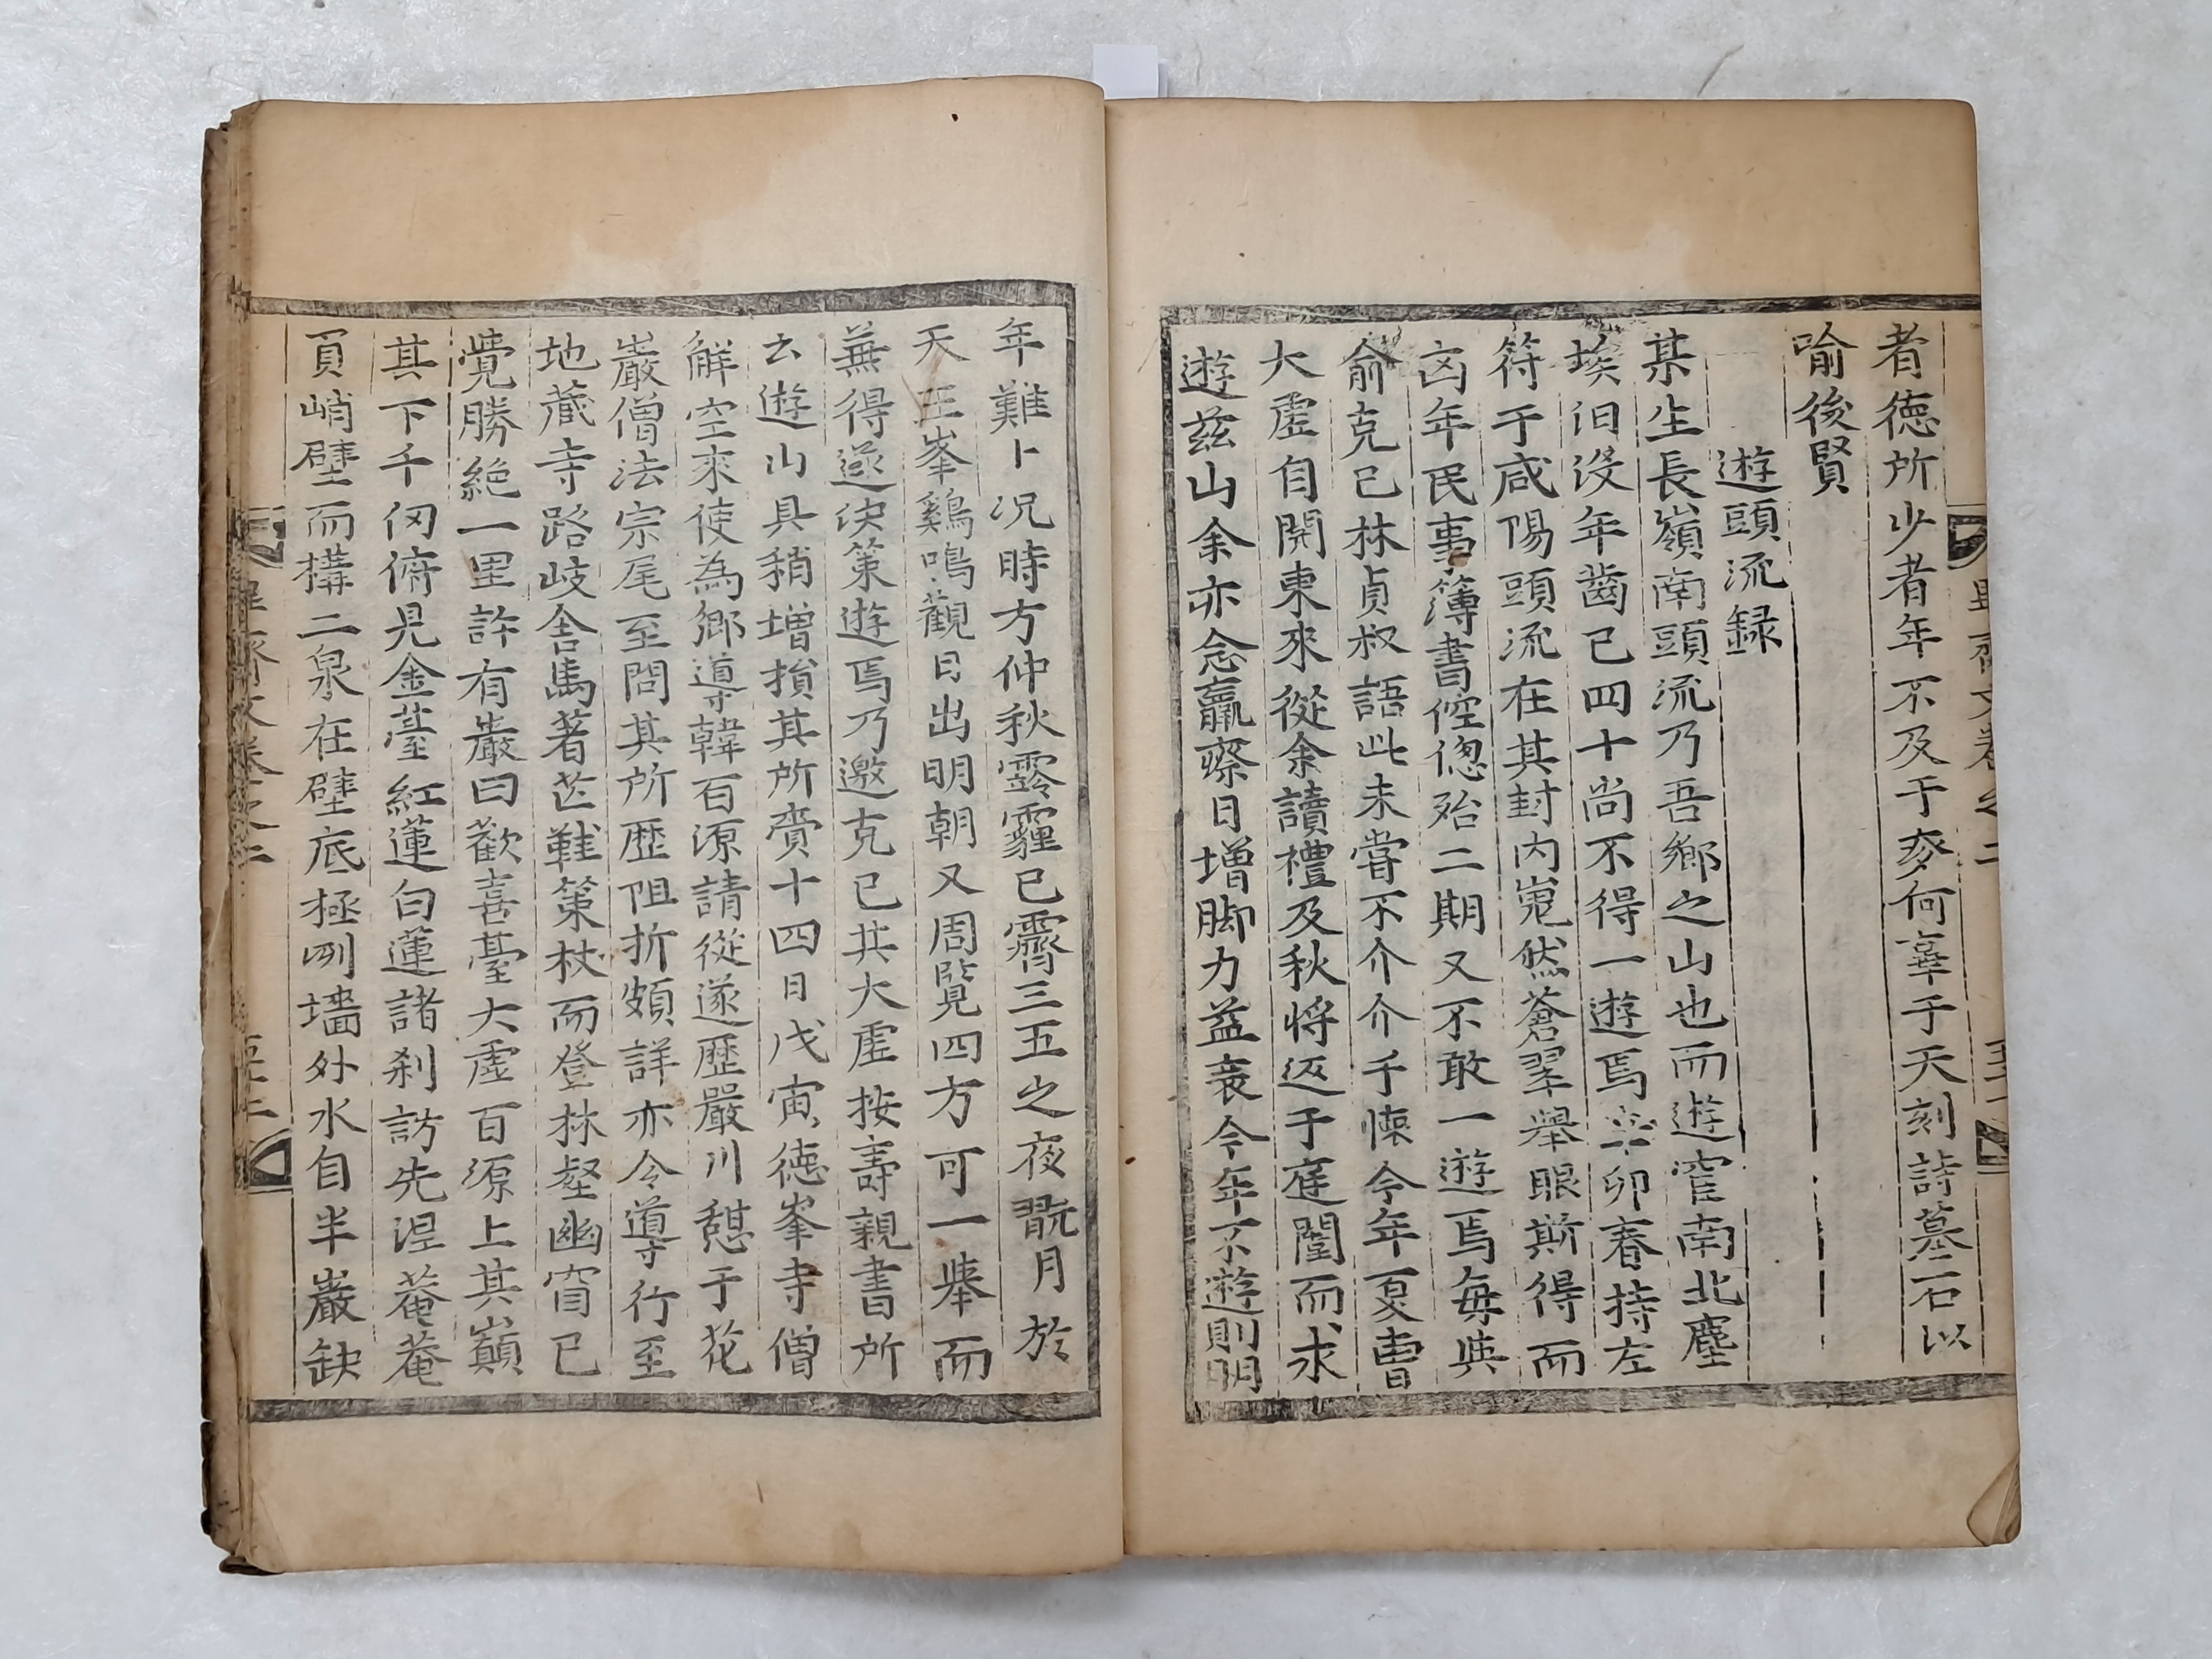 者德所少者年不及于耄何辜于天刻詩墓石以
喻後賢
遊頭流録
某生長嶺南頭流乃吾鄉之山也而遊宦南北塵
埃汩没年齒已四十尚不得一遊焉辛卯春持左
符于咸陽頭流在其封内嵬然蒼翠擧眼斯得而
凶年民事簿書倥偬殆二期又不敢一遊焉每與
俞克己林貞叔語此未嘗不介介于懷今年夏曺
大虛自関東來從余讀禮及秋將返于庭闈而求
遊玆山余亦念羸瘵日增脚力益衰今年不遊則明
年難卜况時方仲秋霒霾已霽三五之夜翫月於
天王峯鷄鳴觀日出明朝又周覧四方可一擧而
兼得遂决策遊焉乃邀克己共大虛按壽親書所
云遊山具稍增損其所賫十四日戊寅德峯寺僧
觧空來使為鄉導韓百源請從遂歴嚴川憇于花
巖僧法宗尾至問其所歴阻折頗詳亦令導行至
地藏寺路岐舍馬著芒鞋策杖而登林壑幽窅已
覺勝絶一里許有巖曰歡喜臺大虛百源上其巓
其下千仭俯見金臺紅蓮白蓮諸刹訪先涅菴菴
負峭壁而構二泉在壁底極冽墻外水自半巖缺